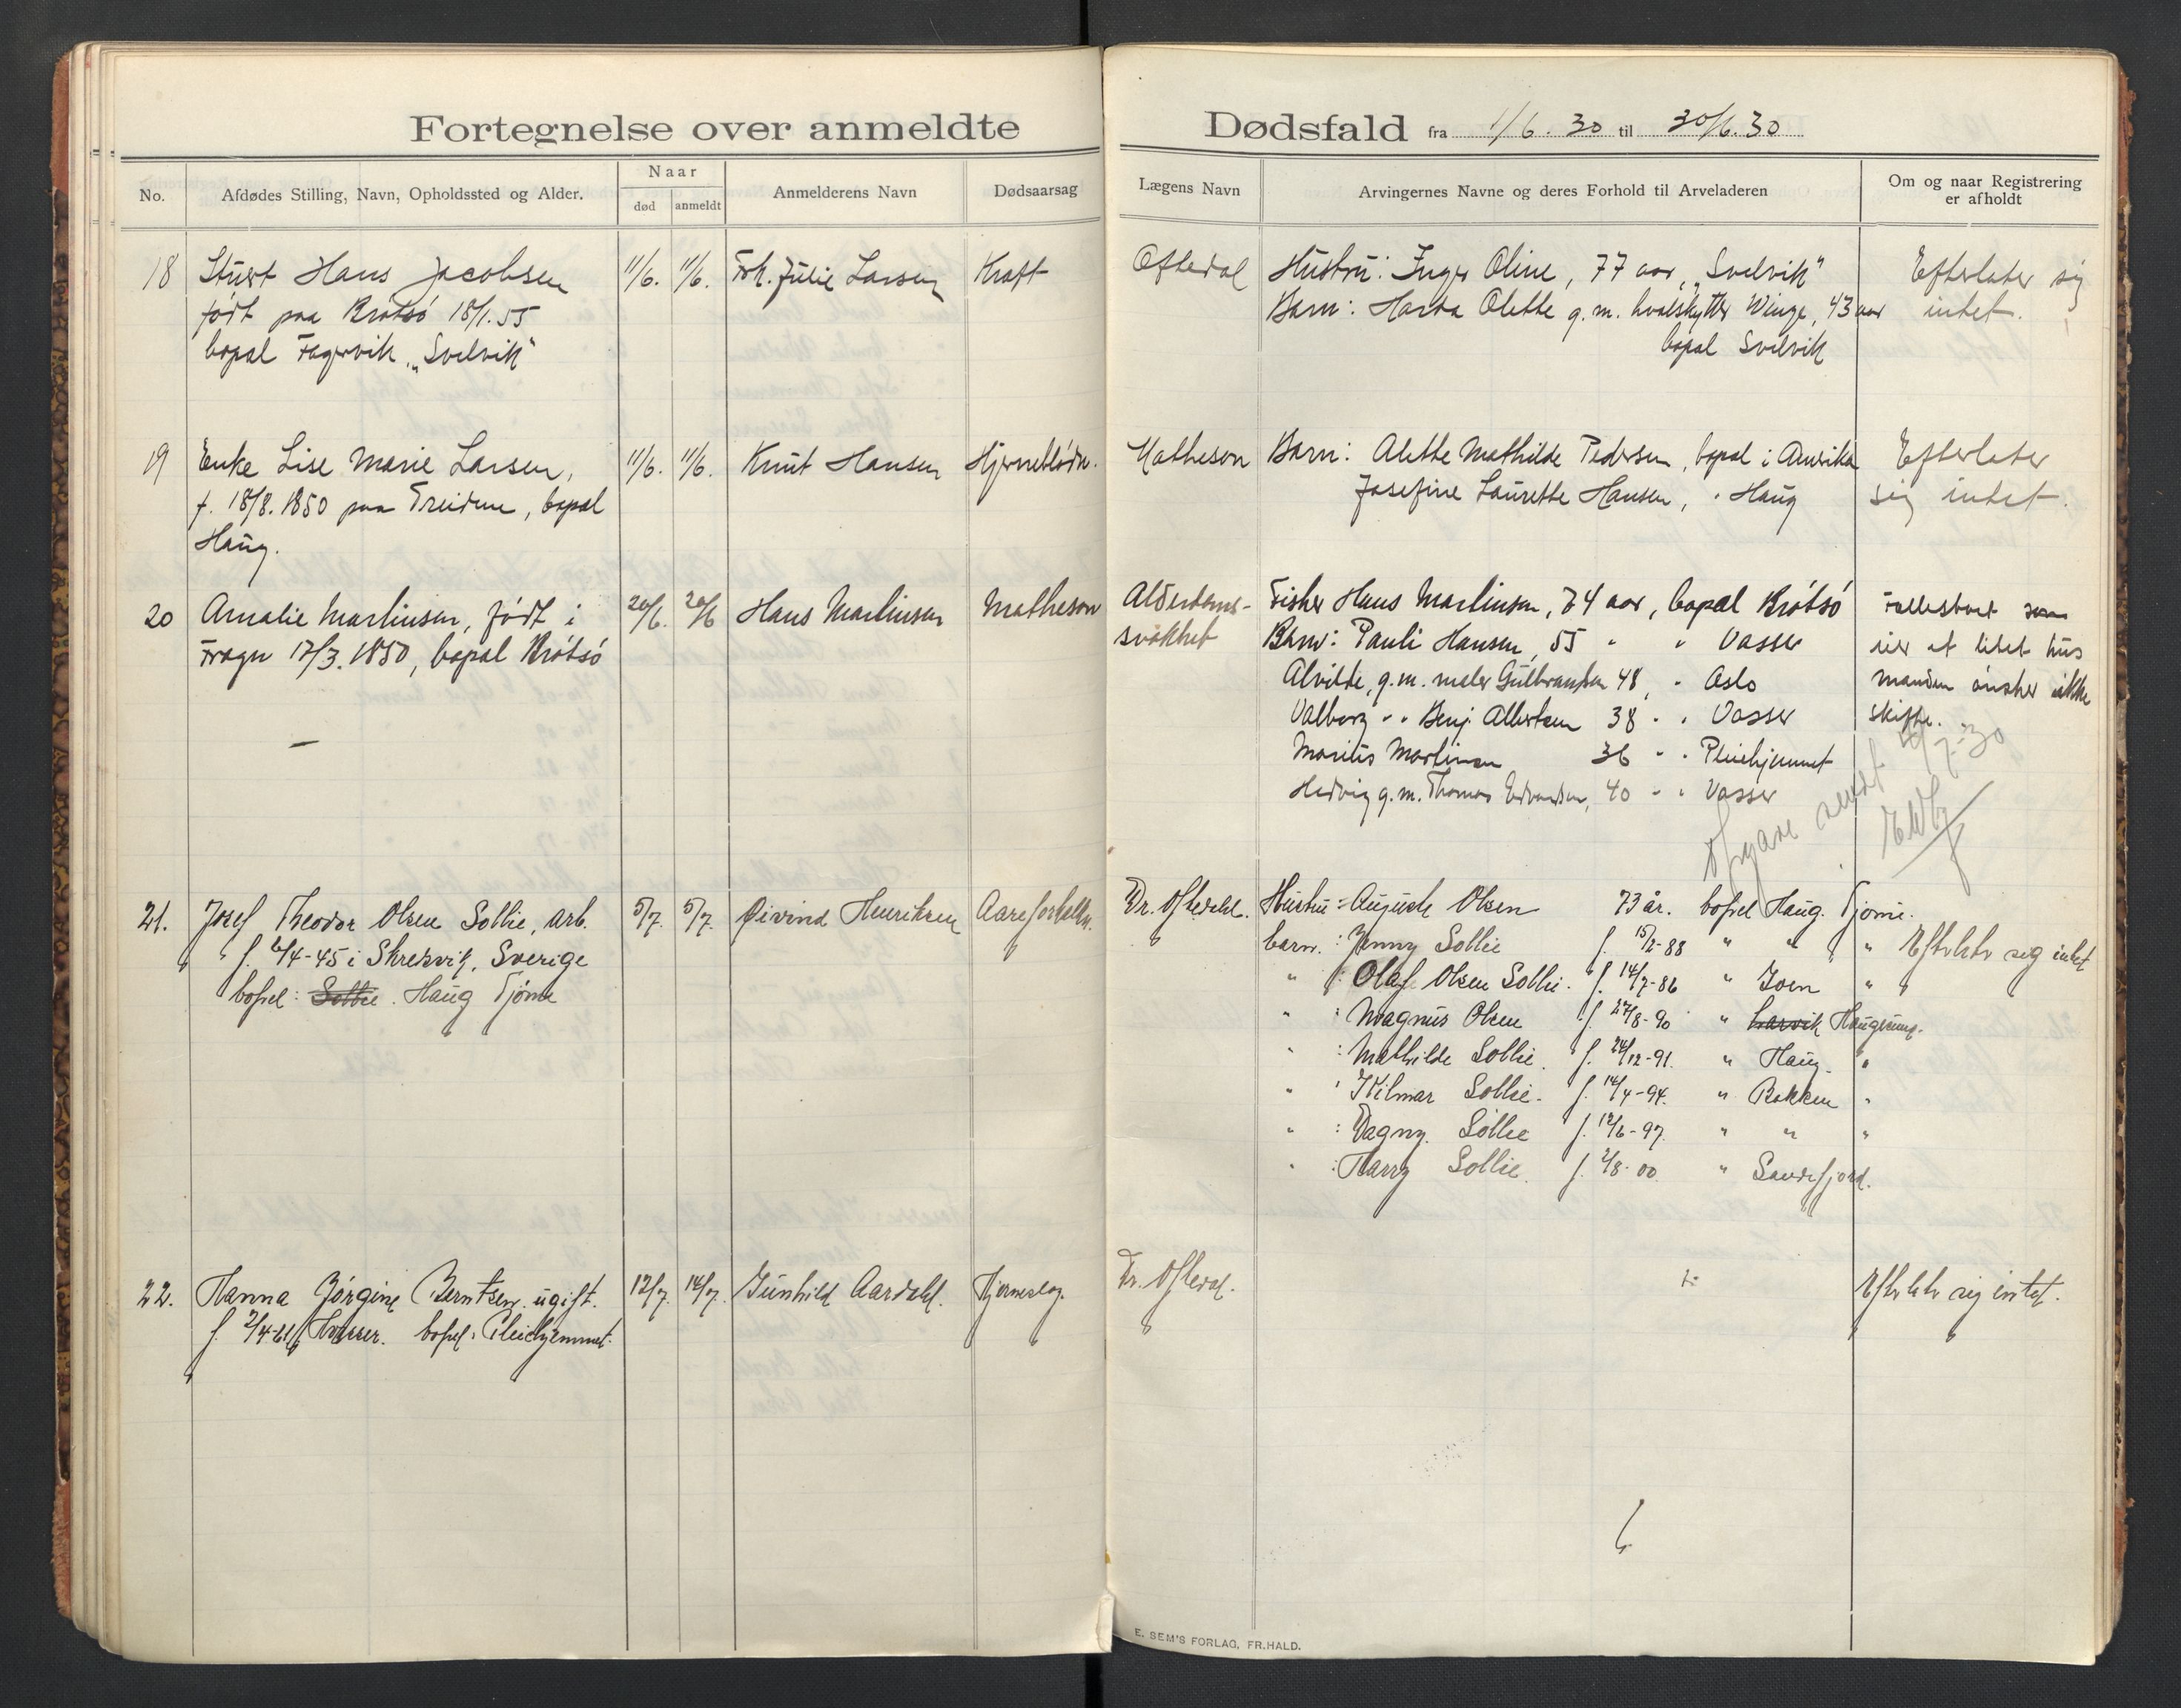 Fortegnelse over anmeldte Dødsfald fra 1/6. 30 til 30/6. 30
No.
Afdødes Stilling, Navn, Opholdssted og Alder.
Naar
død
anmeldt
Anmelderens Navn
Dødsaarsag
Lægens Navn
Arvingernes Navne og deres Forhold til Arveladeren
Om og naar Registrering
er afholdt
18 Stuert Hans Jacobsen 11/6. 11/6. Frk. Julie Larsen Kraft Oftedal Hustru: Inger Oline, 77 aar, "Svelvik" Efterlater sig
født paa Brøtsø 18/1. 55 Barn: Harda Olette g. m. hvalskytter Winge, 43 aar intet.
bopæl Fagervik. "Svelvik" bopæl Svelvik
19 Enke Lise Marie Larsen, 11/6. 11/6. Knut Hansen Hjerneblødn. Matheson Barn: Alette Mathilde Pedersen, bopæl i Amerika Efterlater
f. 18/8. 1850 paa Treidene, bopæl Josefine Laurette Hansen, " Haug sig intet.
Haug.
20 Amalie Martinsen, født i 20/6. 20/6 Hans Martinsen Matheson Alderdoms- Fisker Hans Martinsen, 74 aar, bopæl Brøtsø Fællesboet som
Fragn 17/3. 1850, bopæl Brøtsø svakhet Barn: Pauli Hansen, 55 " " Vasser eier et litet hus
Alvilde, g. m. maler Gulbrandsen 48, " Oslo manden ønsker ikke
Valborg " " Benj. Albertsen 38 " " Vasser skifte.
Marius Martinsen 36 " " Pleiehjemmet
Hedvig g. m. Thomas Edvardsen, 40 " " Vasser
sendt /7-30
21. Josef Theodor Olsen Sollie, arb. 5/7. 5/7. Øivind Henriksen Aareforkalkn. Dr. Oftedahl. Hustru: Auguste Olsen 73 år. bopel Haug. Tjøme.
" f. 6/4-45 i Skredsvik, Sverige barn: Jenny Sollie f. 15/2-88 " " " Efterlater sig intet
bopel: Sollie. Haug Tjøme " : Olaf Olsen Sollie. f. 14/7-86 " Hoen "
" : Magnus Olsen f. 27/8-90 " Larvik Haugesund.
" : Mathilde Sollie. f. 24/12-91. " Haug. "
" : Hilmar Sollie. f. 14/4-94. " Bakken "
" : Dagny. Sollie f. 12/6-97. " " "
" : Harry Sollie. f. 2/8-00. " Sandefjord.
22. Hanna Jørgine Berntsen. ugift. 12/7. 14/7. Gunhild Aardahl. Hjerneslag. Dr. Oftedal. ÷ Efterlater sig intet.
f. 2/4-61 Hvasser. bopel: Pleiehjemmet.
E. SEM'S FORLAG, FR.HALD.